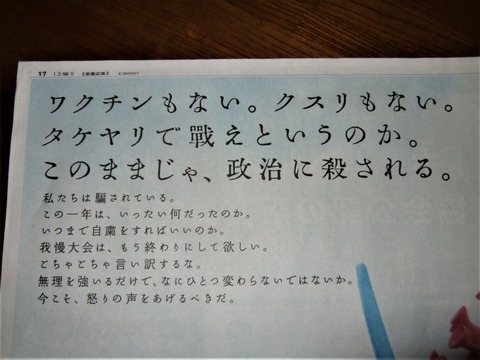 17 13版S 【全面広告】
ワクチンもない。クスリもない。
タケヤリで戦えというのか。
このままじゃ、政治に殺される。
私たちは騙されている。
この一年は、いったい何だったのか。
いつまで自粛をすればいいのか。
我慢大会は、もう終わりにして欲しい。
ごちゃごちゃ言い訳するな。
無理を強いるだけで、なにひとつ変わらないではないか。
今こそ、怒りの声をあげるべきだ。